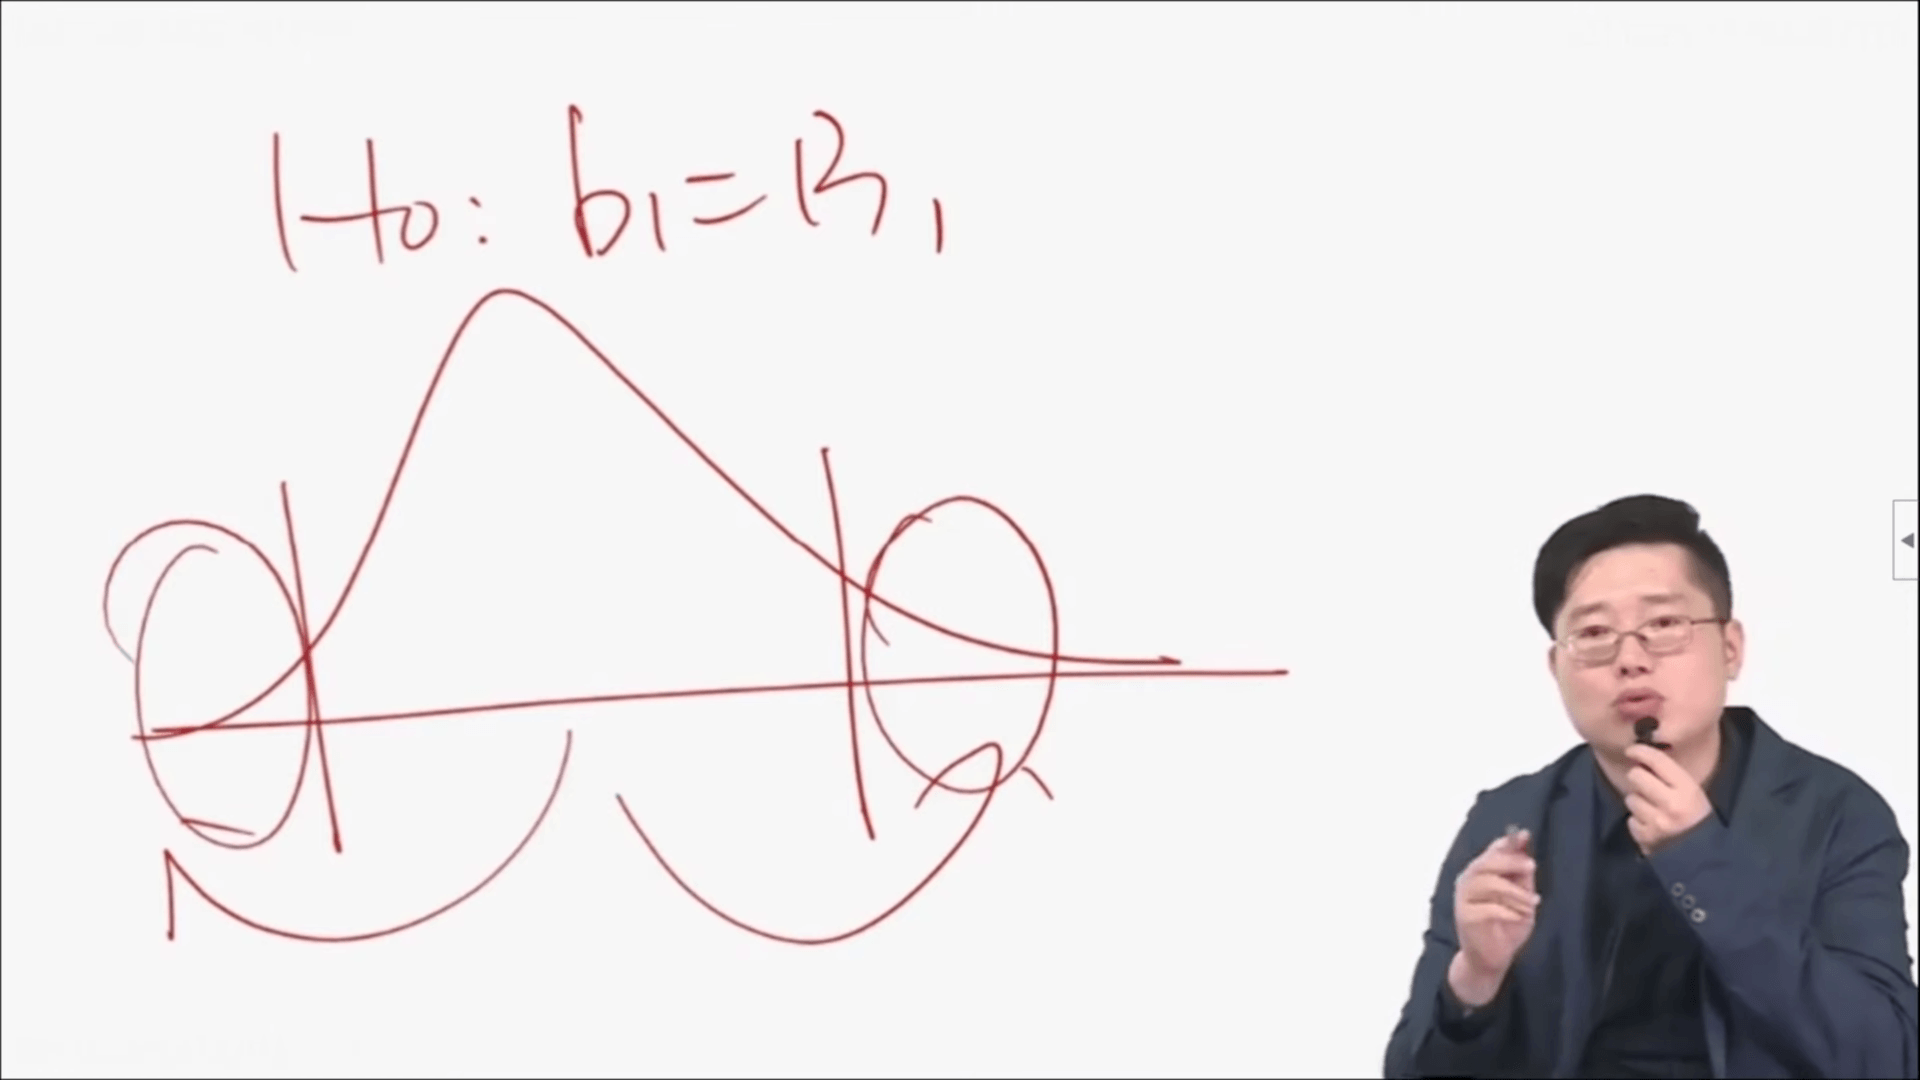 H0: b1=B1